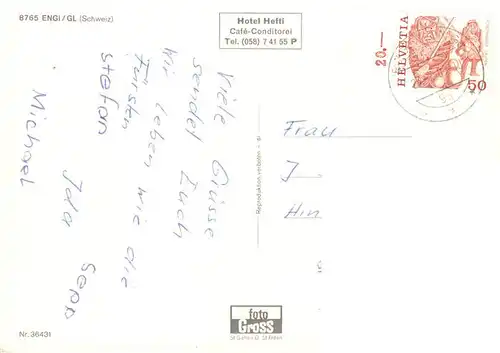 8765 ENGI/GL (Schweiz)
Hotel Hefti
Café-Conditorei
Tel. (058) 7 41 55 P
20.—
HELVETIA
50
Viele Grüsse
sendet Euch
Wir leben wie die
Fürsten
Stefan Ida Sepp
Michael
Frau
J
Hin
Reproduktion verboten
foto
Gross
St. Gallen
Nr. 36431